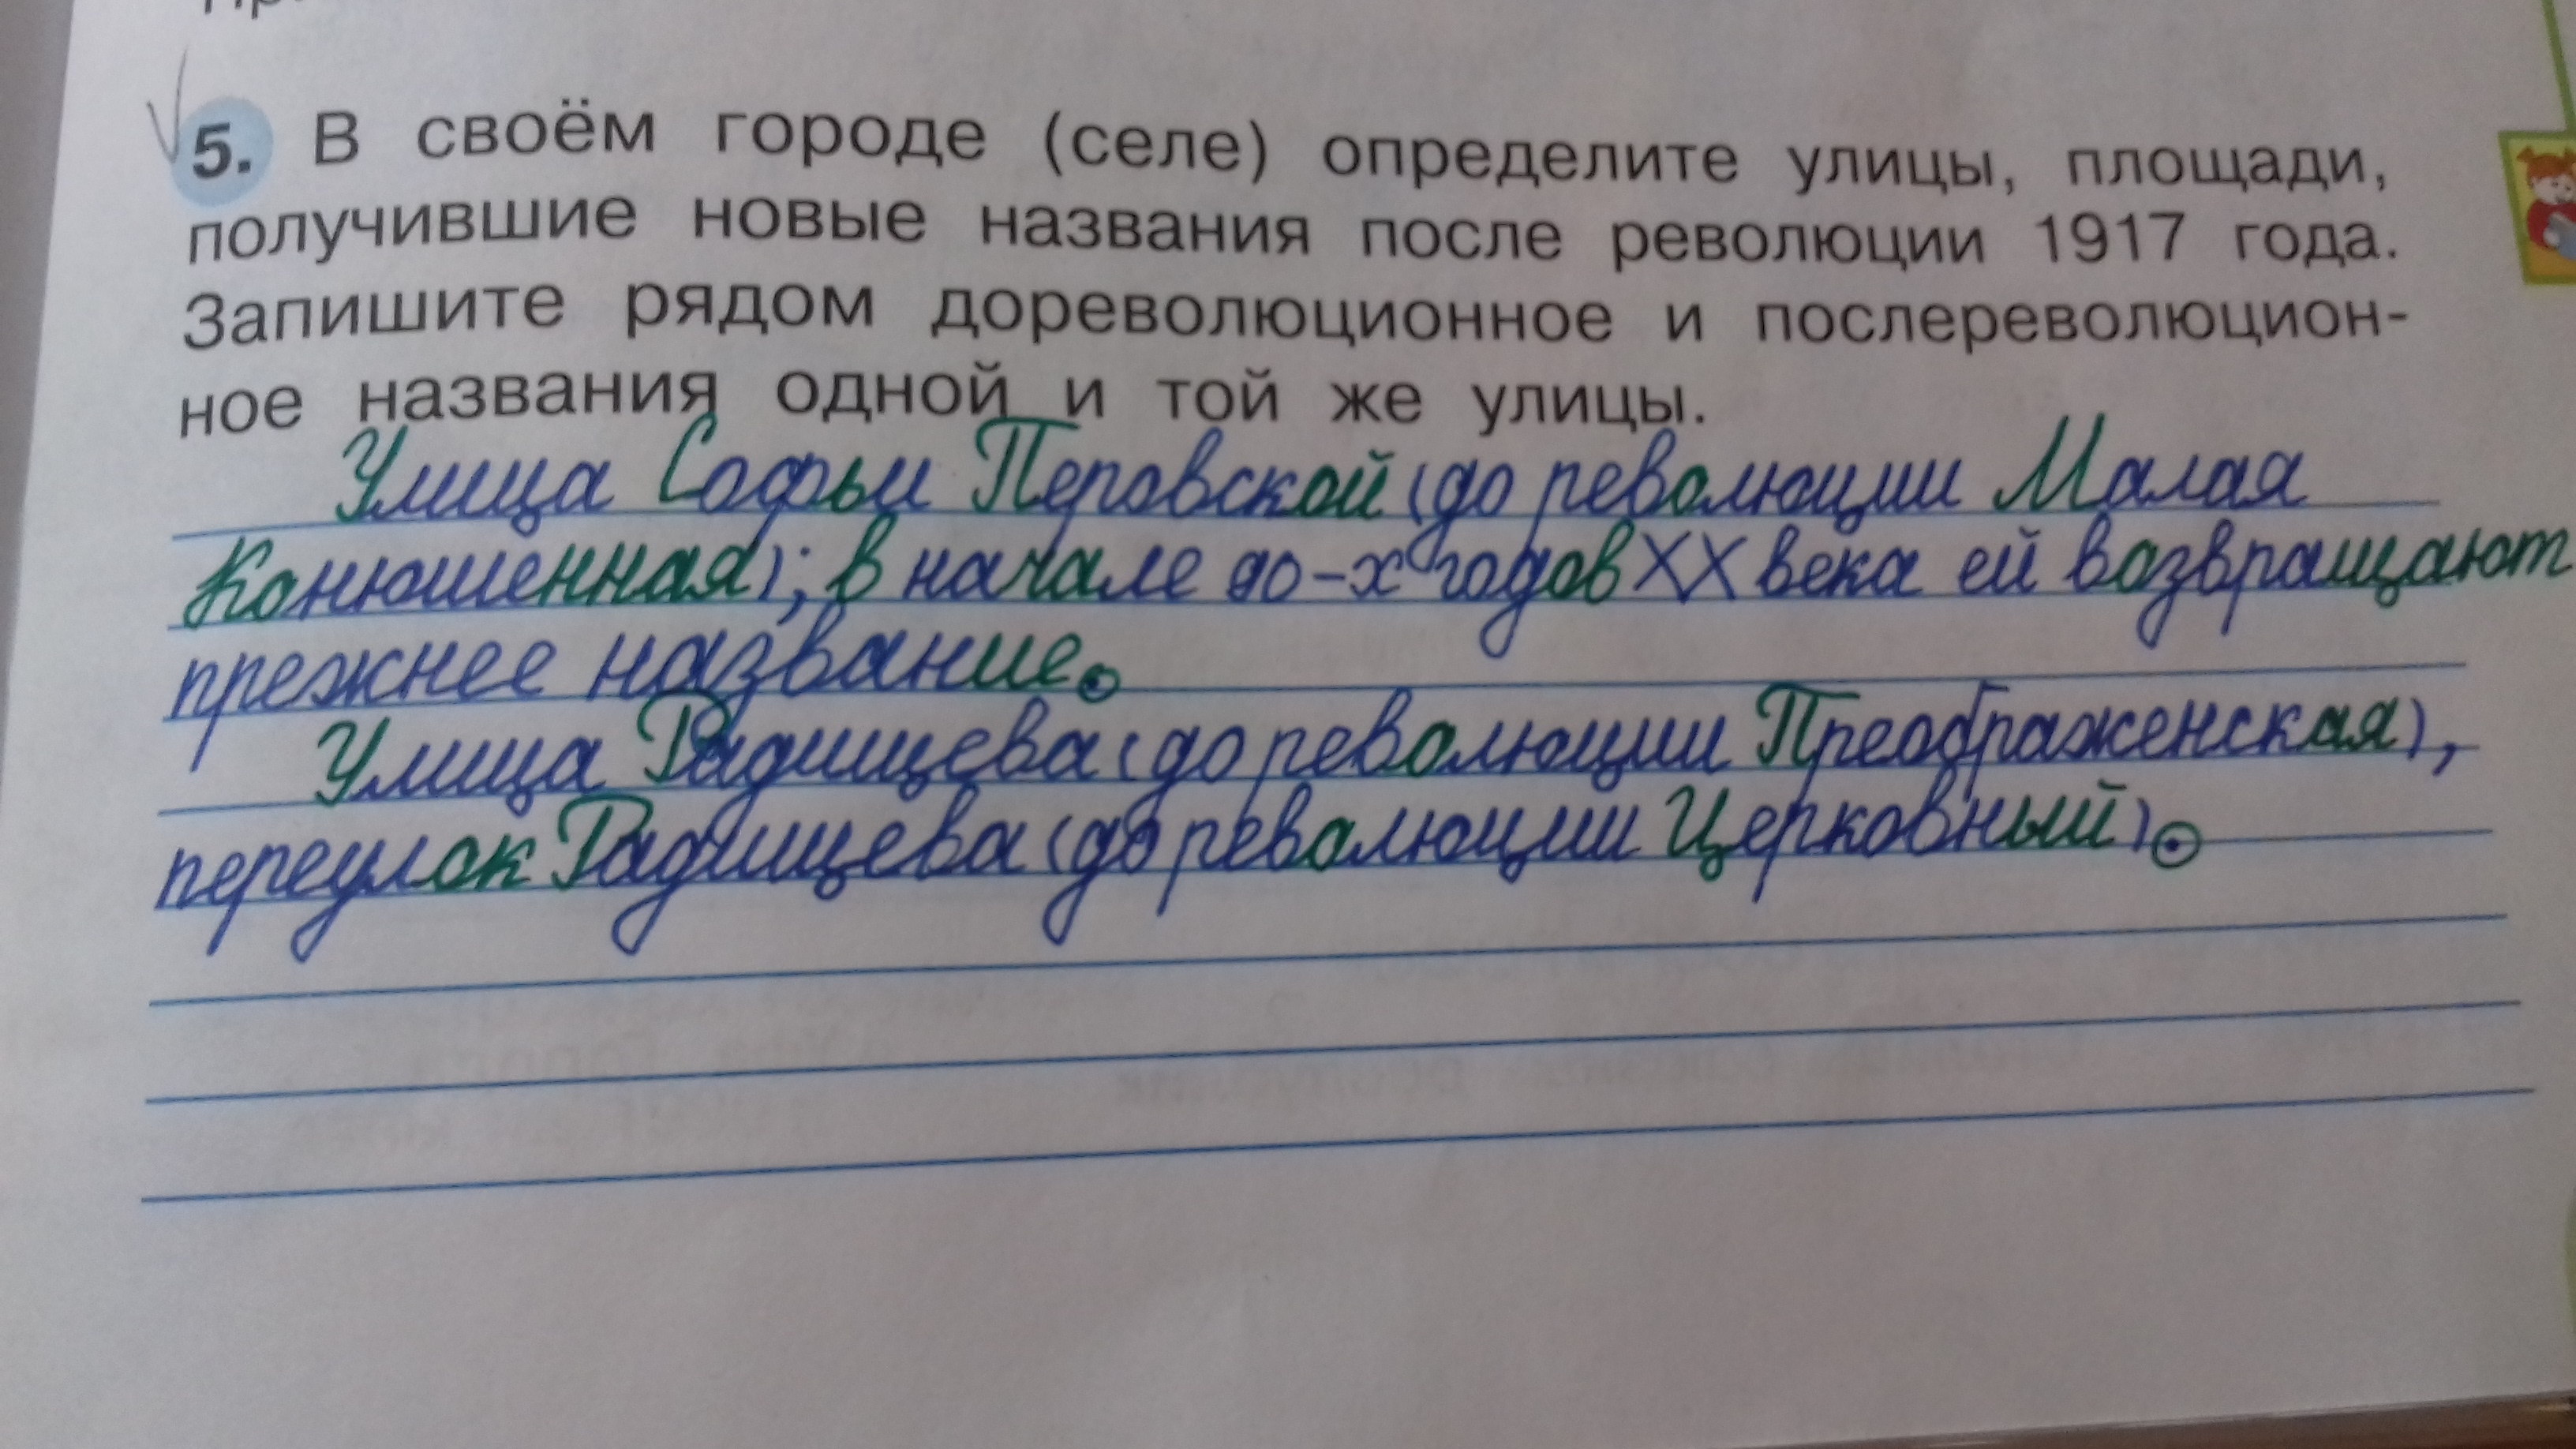 5. В своём городе (селе) определите улицы, площади,
получившие новые названия после революции 1917 года.
Запишите рядом дореволюционное и послереволюцион-
ное названия одной и той же улицы.
Улица Софьи Перовской (до революции Малая
Конюшенная); в начале 90-х годов XX века ей возвращают
прежнее название.
Улица Радищева (до революции Преображенская),
переулок Радищева (до революции Церковный).